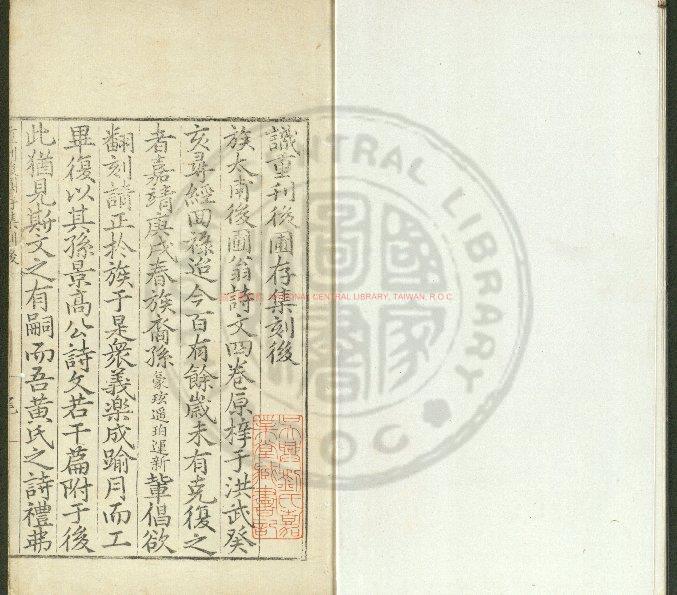 識重刊後圃存集刻後
族大甫後圃翁詩文四卷原梓于洪武癸
亥尋經回祿迨今百有餘歲未有克復之
者嘉靖庚戌春族裔孫豪玹遥珀運新輩倡欲
翻刻請正於族于是衆義樂成踰月而工
畢復以其孫景高公詩文若干篇附于後
此猶見斯文之有嗣而吾黃氏之詩禮弗
NATIONAL CENTRAL LIBRARY, TAIWAN, R.O.C
CENTRAL LIBRARY